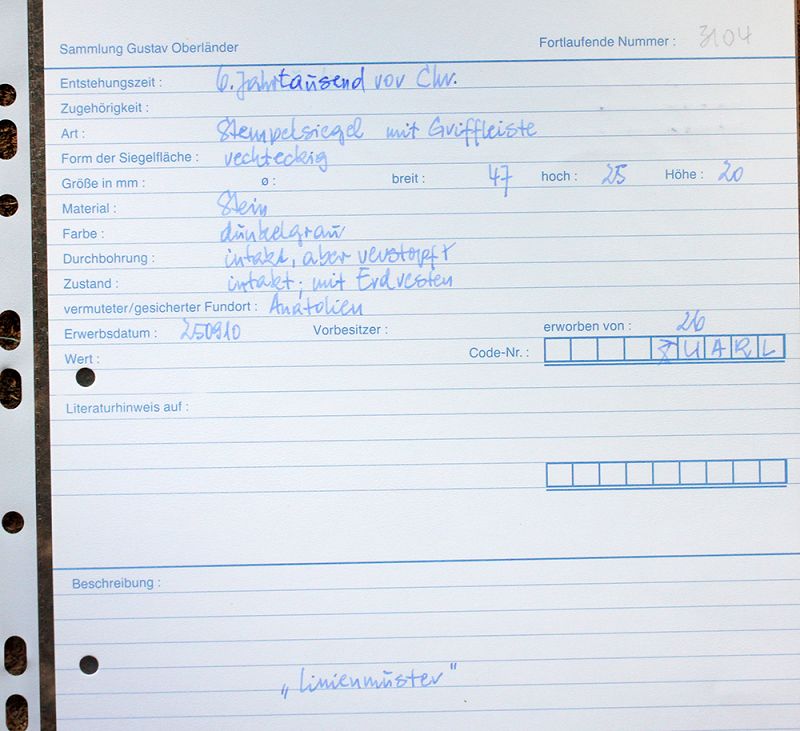 Sammlung Gustav Oberländer
Fortlaufende Nummer : 3104
Entstehungszeit : 6. Jahrtausend vor Chr.
Zugehörigkeit :
Art : Stempelsiegel mit Griffleiste
Form der Siegelfläche : rechteckig
Größe in mm : ø : breit : 47 hoch : 25 Höhe : 20
Material : Stein
Farbe : dunkelgrau
Durchbohrung : intakt, aber verstopft
Zustand : intakt; mit Erdresten
vermuteter/gesicherter Fundort : Anatolien
Erwerbsdatum : 250910 Vorbesitzer : erworben von : 26
Wert : Code-Nr. : X U A R L
Literaturhinweis auf :
Beschreibung :
„Linienmuster"